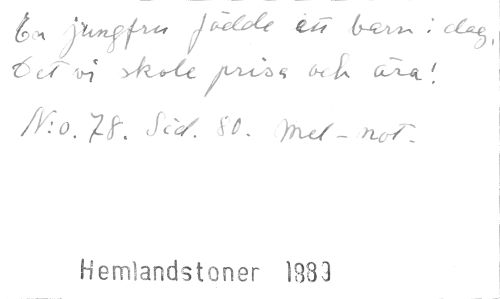 En jungfru födde ett barn i dag,
Det vi skole prisa och ära!
N:o. 78. Sid. 80. Mel-not.
Hemlandstoner 1889